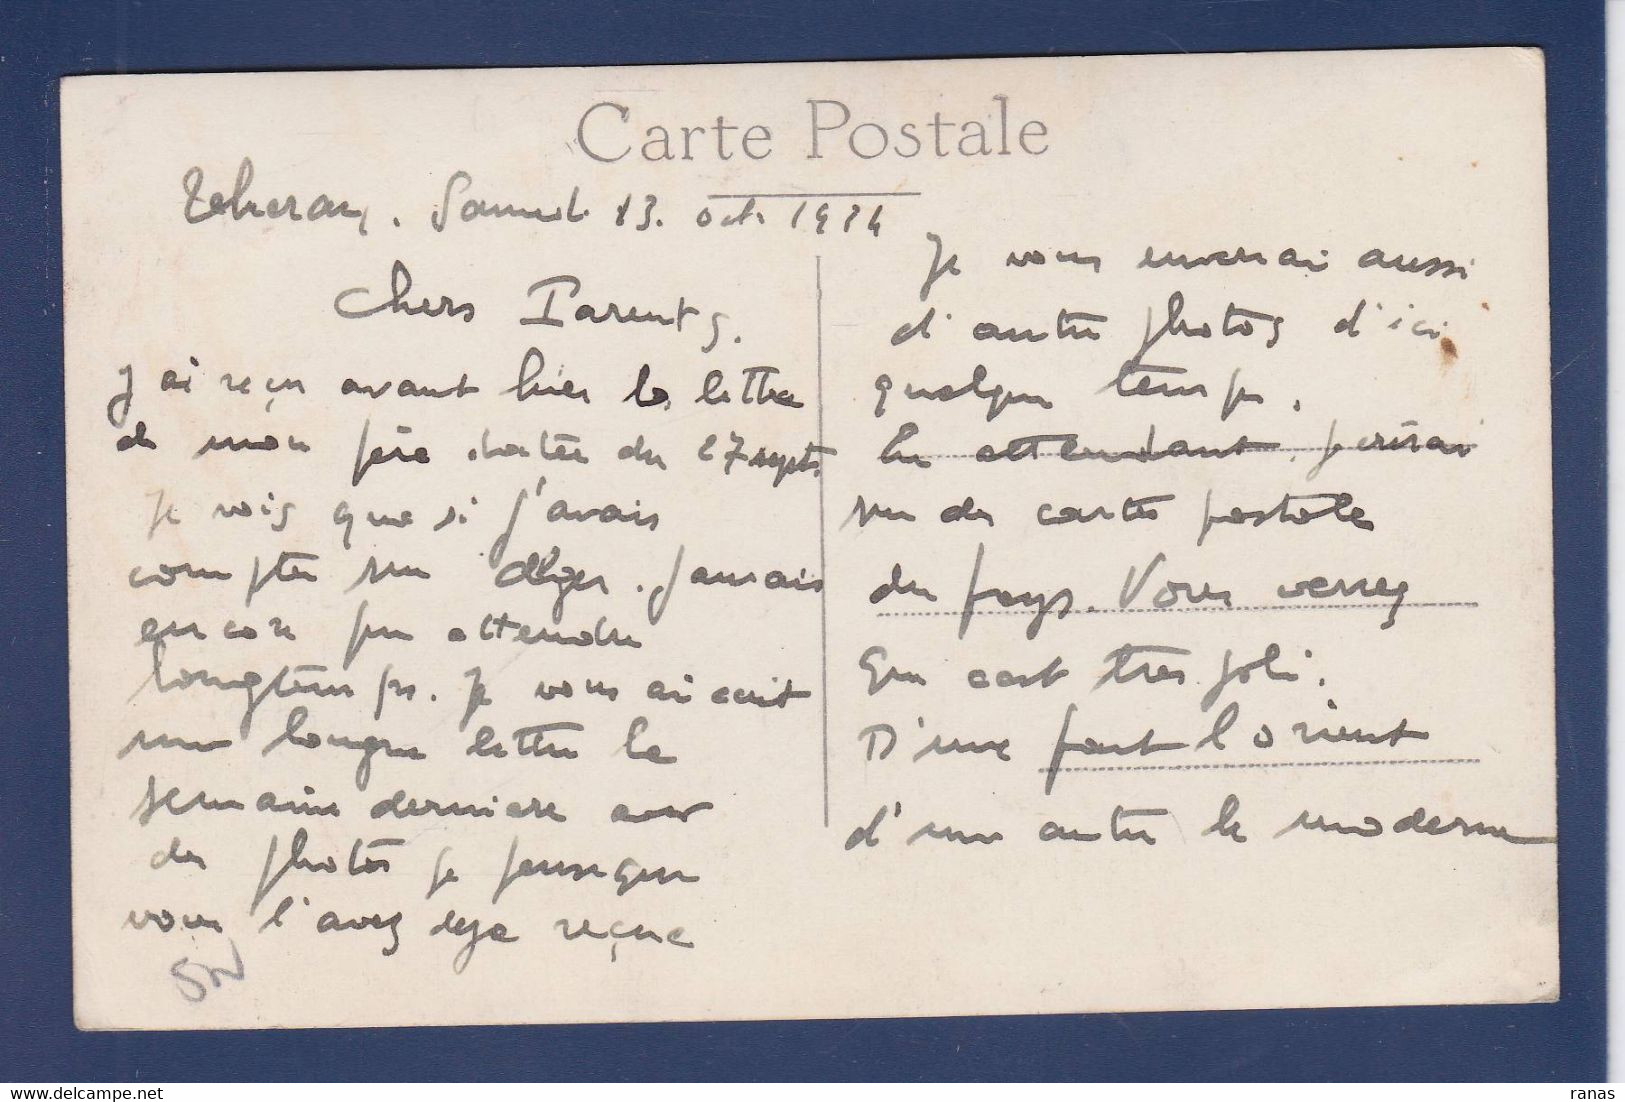 Carte Postale
Teheran. Samedi 13. oct. 1934
Chers Parents.
J'ai reçu avant hier la lettre
de mon père datée du 27 sept.
Je vois que si j'avais
compter sur Alger. J'aurais
encore pu attendre
longtemps. Je vous ai ecrit
une longue lettre la
semaine derniere avec
des photos je pense que
vous l'avez deja reçue
Je vous enverrai aussi
d'autre photos d'ici
quelque temps.
En attendant. j'ecrirai
sur des cartes postale
du pays. Vous verrez
que cest tres joli.
D'une part l'orient
d'une autre le moderne
ranas